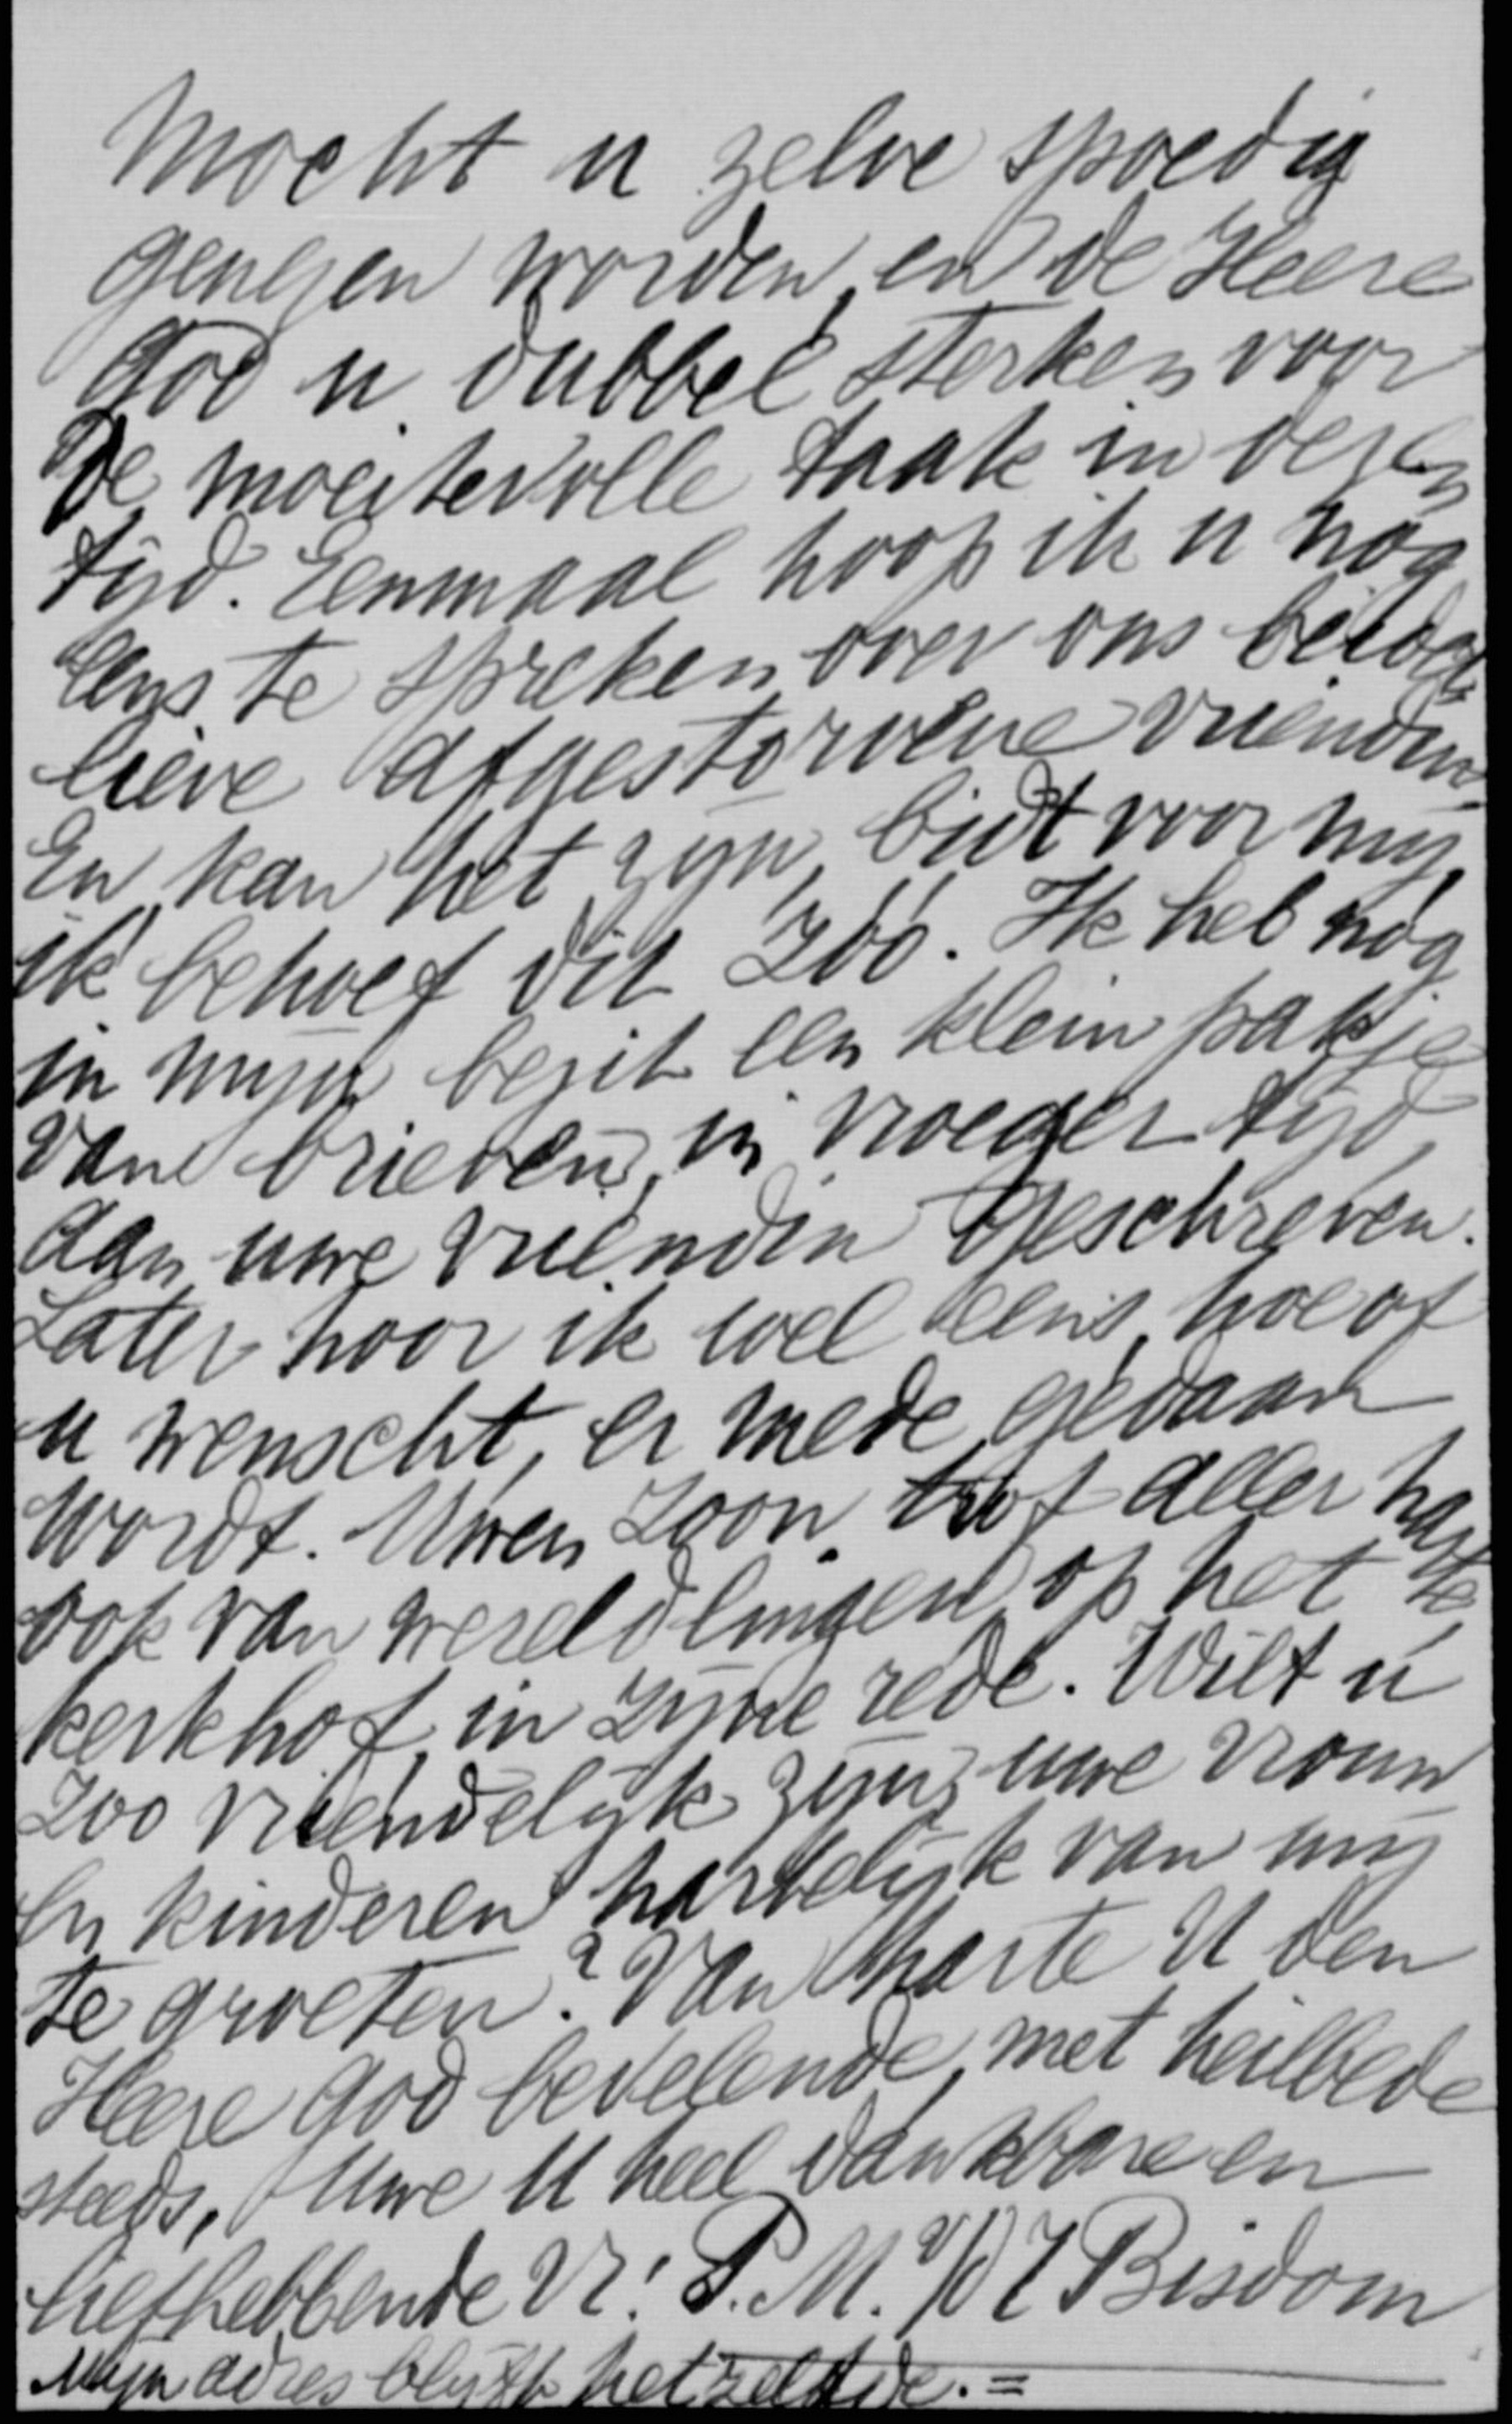 Mocht u zelve spoedig
genezen worden, en de Heere
God u dubbel sterken voor
de moeitevolle taak in dezen
tijd. Eenmaal hoop ik u nog
eens te spreken, over ons beider
lieve afgestorvene vriendin.
En kan het zijn, bidt voor mij,
ik behoef dit zóó. Ik heb nog
in mijn bezit een klein pakje
van brieven, in vroeger tijd,
aan uwe vriendin geschreven.
Later hoor ik wel eens, hoe of
u wenscht, er mede gedaan
wordt. Uwen Zoon trof aller harte
ook van wereldlingen, op het
kerkhof, in zijne rede. Wilt u
zoo vriendelijk zijn, uwe vrouw
en kinderen hartelijk van mij
te groeten? Van harte U den
Heere God bevelende, met heilbede
steeds, Uwe U heel dankbare en
liefhebbende Vr: P. M. v/d Z Bisdom
Mijn adres blijft hetzelfde. =